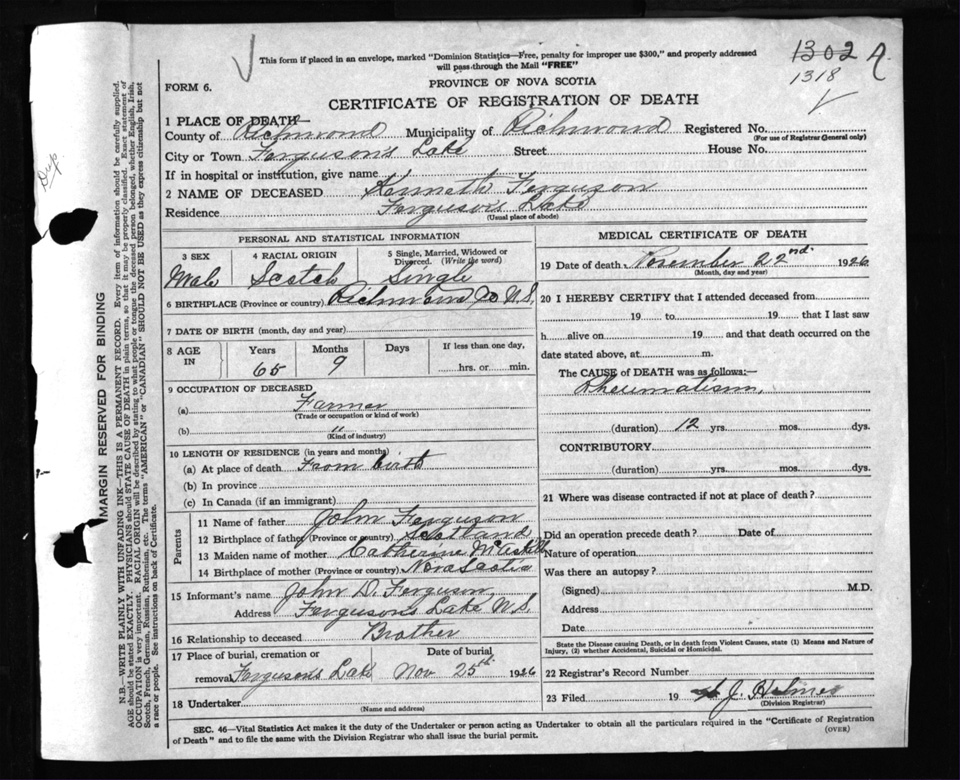 This form if placed in an envelope, marked "Dominion Statistics—Free, penalty for improper use $300," and properly addressed
will pass through the Mail "FREE"
1302 A
1318
FORM 6.
PROVINCE OF NOVA SCOTIA
CERTIFICATE OF REGISTRATION OF DEATH
1 PLACE OF DEATH—
County of Richmond Municipality of Richmond Registered No.
(For use of Registrar General only)
City or Town Ferguson's Lake Street House No.
If in hospital or institution, give name
2 NAME OF DECEASED Kenneth Ferguson
Residence Ferguson's Lake
(Usual place of abode)
PERSONAL AND STATISTICAL INFORMATION
3 SEX 4 RACIAL ORIGIN 5 Single, Married, Widowed or Divorced. (Write the word)
Male Scotch Single
6 BIRTHPLACE (Province or country) Richmond Co N.S.
7 DATE OF BIRTH (month, day and year)
8 AGE IN Years Months Days If less than one day,
65 9 hrs. or min.
9 OCCUPATION OF DECEASED
(a) Farmer
(Trade or occupation or kind of work)
(b) "
(Kind of industry)
10 LENGTH OF RESIDENCE (in years and months)
(a) At place of death From birth
(b) In province
(c) In Canada (if an immigrant)
Parents
11 Name of father John Ferguson
12 Birthplace of father (Province or country) Scotland
13 Maiden name of mother Catherine McAskill
14 Birthplace of mother (Province or country) Nova Scotia
15 Informant's name John D. Ferguson
Address Ferguson's Lake N.S.
16 Relationship to deceased Brother
17 Place of burial, cremation or removal Date of burial
Ferguson's Lake Nov 25th 1926
18 Undertaker
(Name and address)
MEDICAL CERTIFICATE OF DEATH
19 Date of death November 22nd 1926
(Month, day and year)
20 I HEREBY CERTIFY that I attended deceased from
19 to 19 that I last saw
h alive on 19 and that death occurred on the
date stated above, at m.
The CAUSE of DEATH was as follows:—
Rheumatism,
(duration) 12 yrs. mos. dys.
CONTRIBUTORY
(duration) yrs. mos. dys.
21 Where was disease contracted if not at place of death?
Did an operation precede death? Date of
Nature of operation
Was there an autopsy?
(Signed) M.D.
Address
Date
State the Disease causing Death, or in death from Violent Causes, state (1) Means and Nature of
Injury, (2) whether Accidental, Suicidal or Homicidal.
22 Registrar's Record Number
23 Filed 19 J. Holmes
(Division Registrar)
SEC. 46—Vital Statistics Act makes it the duty of the Undertaker or person acting as Undertaker to obtain all the particulars required in the "Certificate of Registration
of Death" and to file the same with the Division Registrar who shall issue the burial permit.
(OVER)
Dup
MARGIN RESERVED FOR BINDING
N.B.—WRITE PLAINLY WITH UNFADING INK—THIS IS A PERMANENT RECORD. Every item of information should be carefully supplied.
AGE should be stated EXACTLY. PHYSICIANS should STATE CAUSE OF DEATH in plain terms, so that it may be properly classified. Exact statement of
OCCUPATION is very important. RACIAL ORIGIN will be described by stating to what people or tongue the deceased person belonged, whether English, Irish,
Scotch, French, German, Russian, Ruthenian, etc. The terms "AMERICAN" or "CANADIAN" SHOULD NOT BE USED as they express citizenship but not
a race or people. See instructions on back of Certificate.